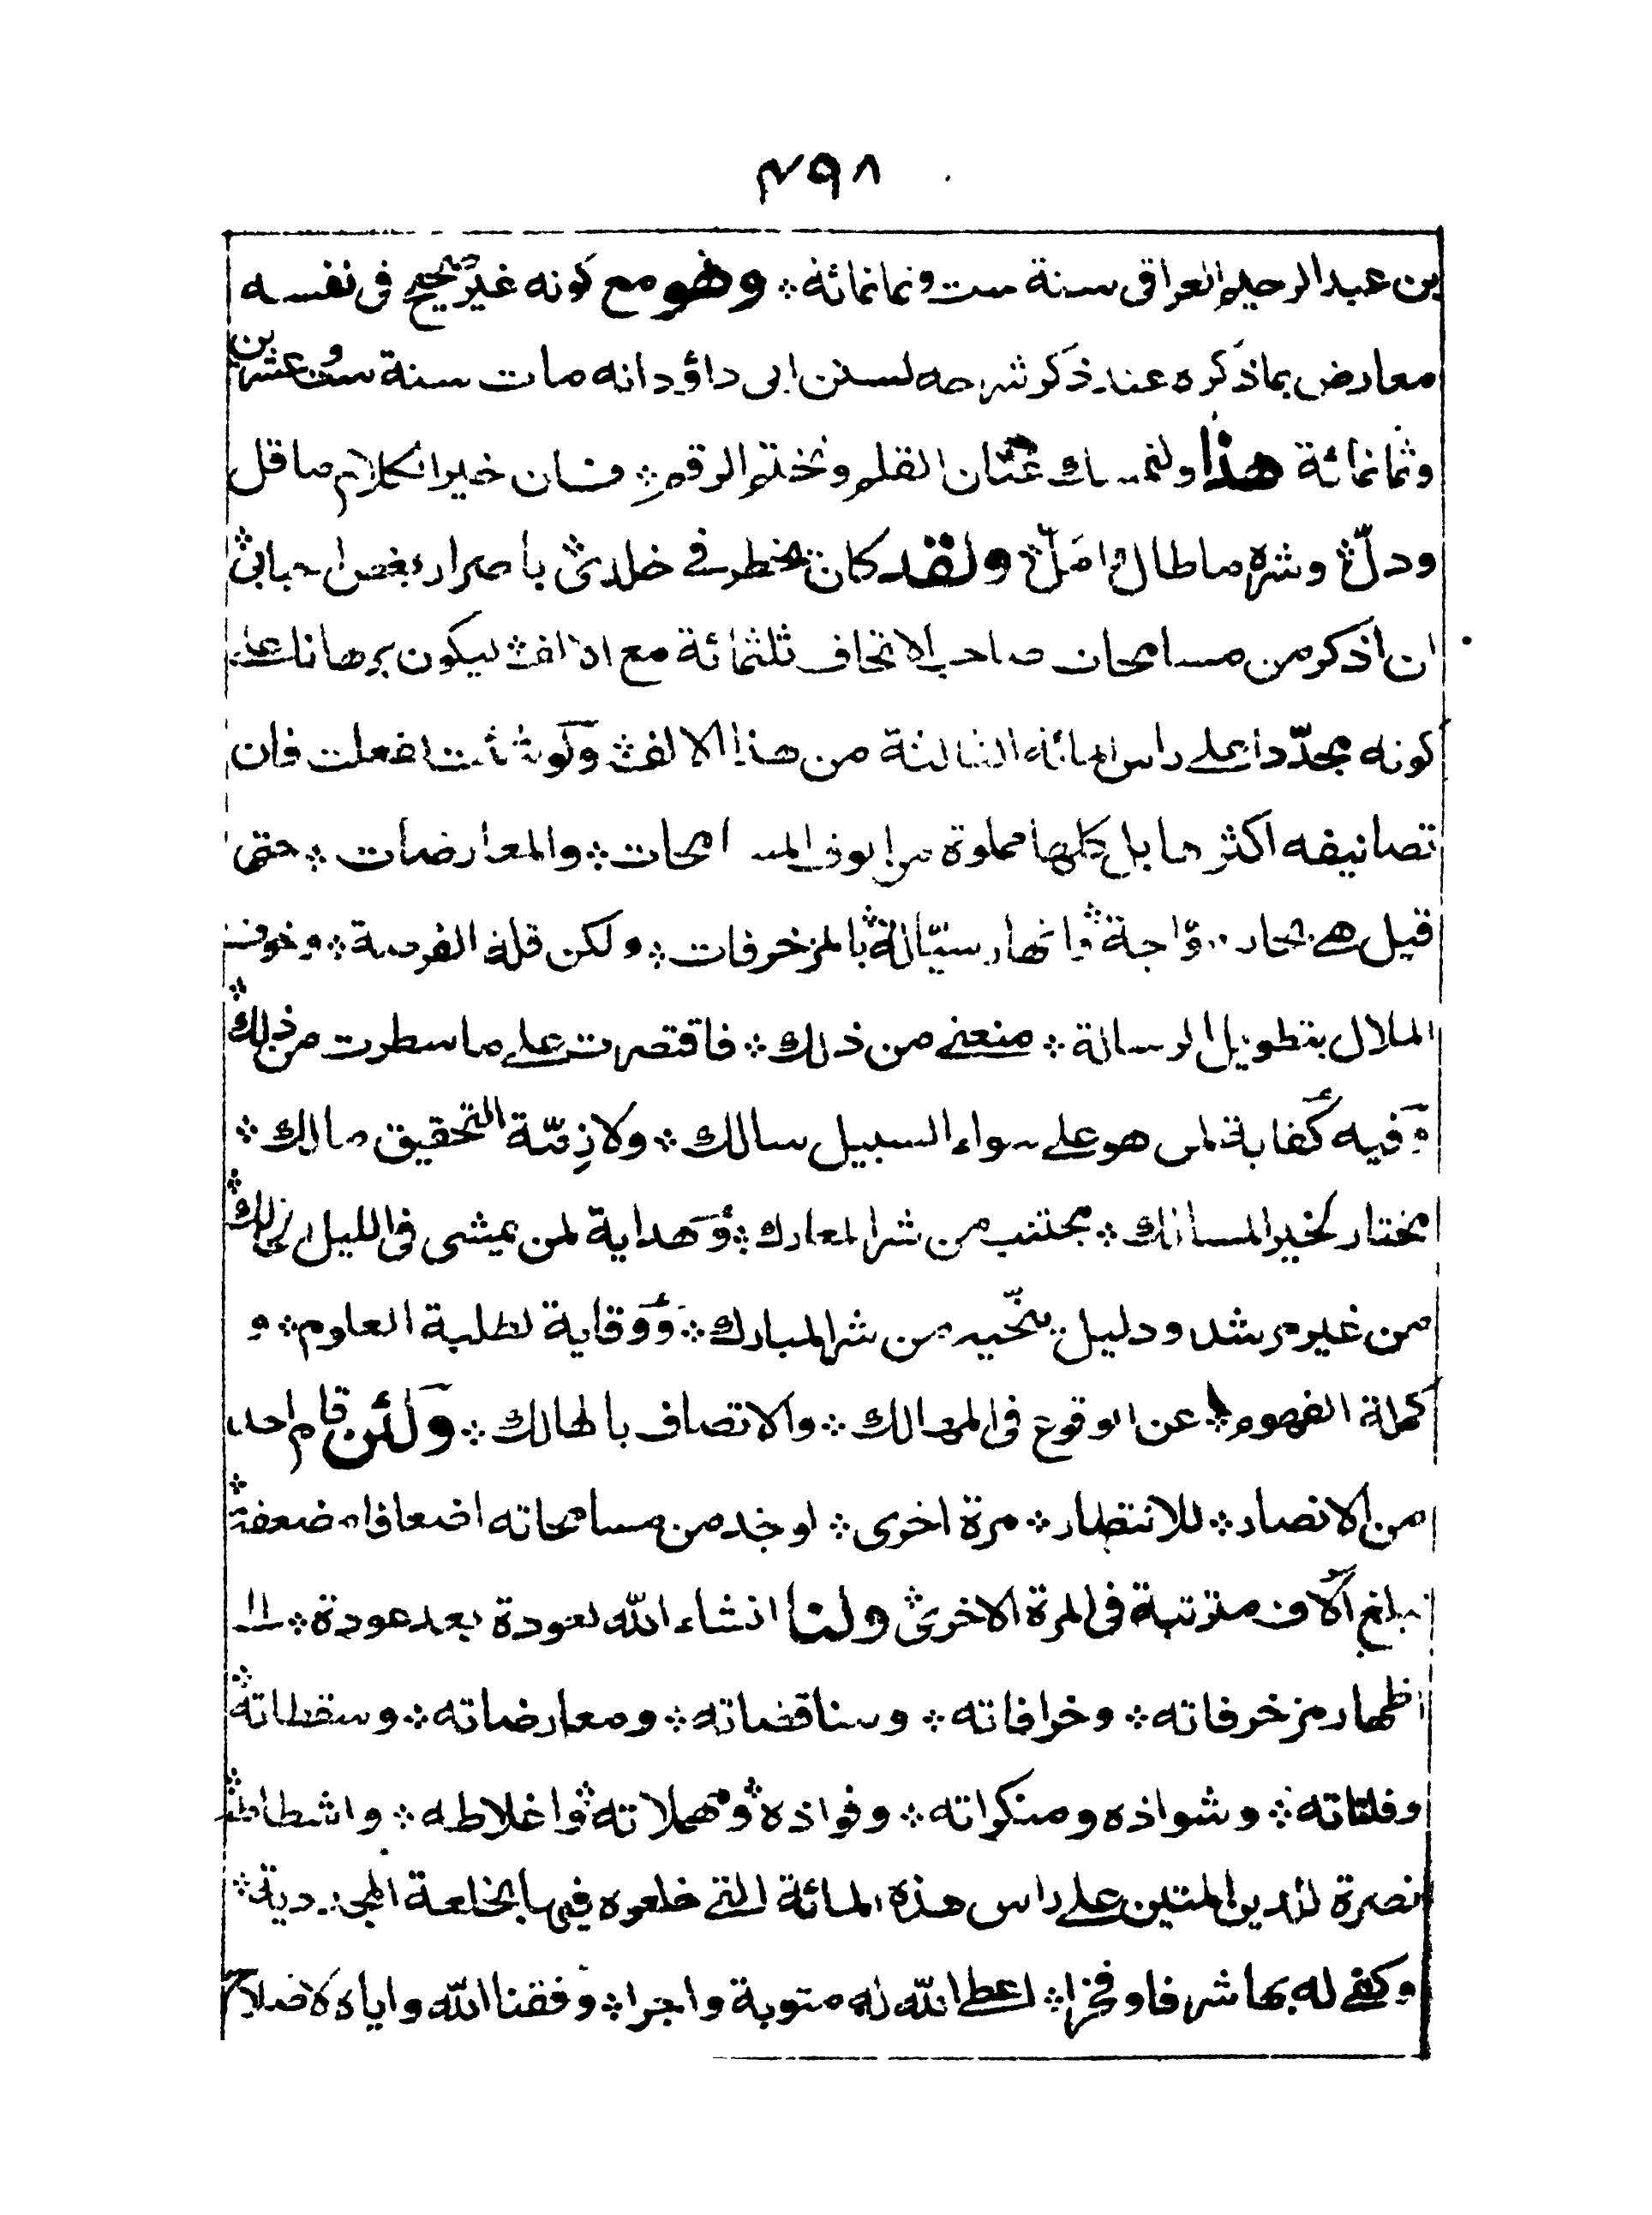 ٤٩٨
بن عبد الرحيم العراقي سنة ست وثمانمائة ۞ وهو مع كونه غير صحيح في نفسه
معارض بما ذكره عند ذكر شرحه لسنن ابي داؤد انه مات سنة ست وعشرين
وثمانمائة هذا ولنمسك عنان القلم ونختم الرقم ۞ فان خير الكلام ما قل
ودلّ ۞ وشره ما طال وامَلّ ۞ ولقد كان يخطر في خلدي ۞ باصرار بعض احبابي ۞
ان اذكر من مسامحات صاحب الاتحاف ثلثمائة مع الالف ۞ ليكون برهانا على
كونه مجدّدا على راس المائة الثالثة من هذا الالف ۞ ولو شئت لفعلت فان
تصانيفه اكثرها بل كلها مملوة من الوف المسامحات ۞ والمعارضات ۞ حتى
قيل هي بحار موّاجة ۞ وانهار سيّالة ۞ بالمزخرفات ۞ ولكن قلة الفرصة ۞ وخوف
الملال بتطويل الرسالة ۞ منعني من ذلك ۞ فاقتصرت على ما سطرت من ذلك ۞
وفيه كفاية لمن هو على سواء السبيل سالك ۞ ولازمّة التحقيق مالك ۞
مختار لخير المسالك ۞ مجتنب من شر المعارك ۞ وهداية لمن يمشي في الليل الحالك ۞
من غير مرشد ودليل ينجّيه من شر المبارك ۞ ووقاية لطلبة العلوم ۞ و
كملة الفهوم ۞ عن الوقوع في المهالك ۞ والاتصاف بالهالك ۞ ولئن قام احد
من الانصار ۞ للانتصار ۞ مرة اخرى ۞ لوجد من مسامحاته اضعافا مضعفة ۞
تبلغ آلاف مترتبة في المرة الاخرى ۞ ولنا انشاء الله لعودة بعد عودة ۞ الى
اظهار مزخرفاته ۞ وخرافاته ۞ ومناقضاته ۞ ومعارضاته ۞ وسقطاته ۞
وفلتاته ۞ وشواذه ومنكراته ۞ وفواذه ۞ ومهملاته ۞ واغلاطه ۞ واشطاطه ۞
نصرة للدين المتين على راس هذه المائة التي خلعوه فيها بالخلعة المجددية ۞
وكفى له بها شرفا وفخرا ۞ اعطى الله له مثوبة واجرا ۞ وفقنا الله واياه لاصلاح